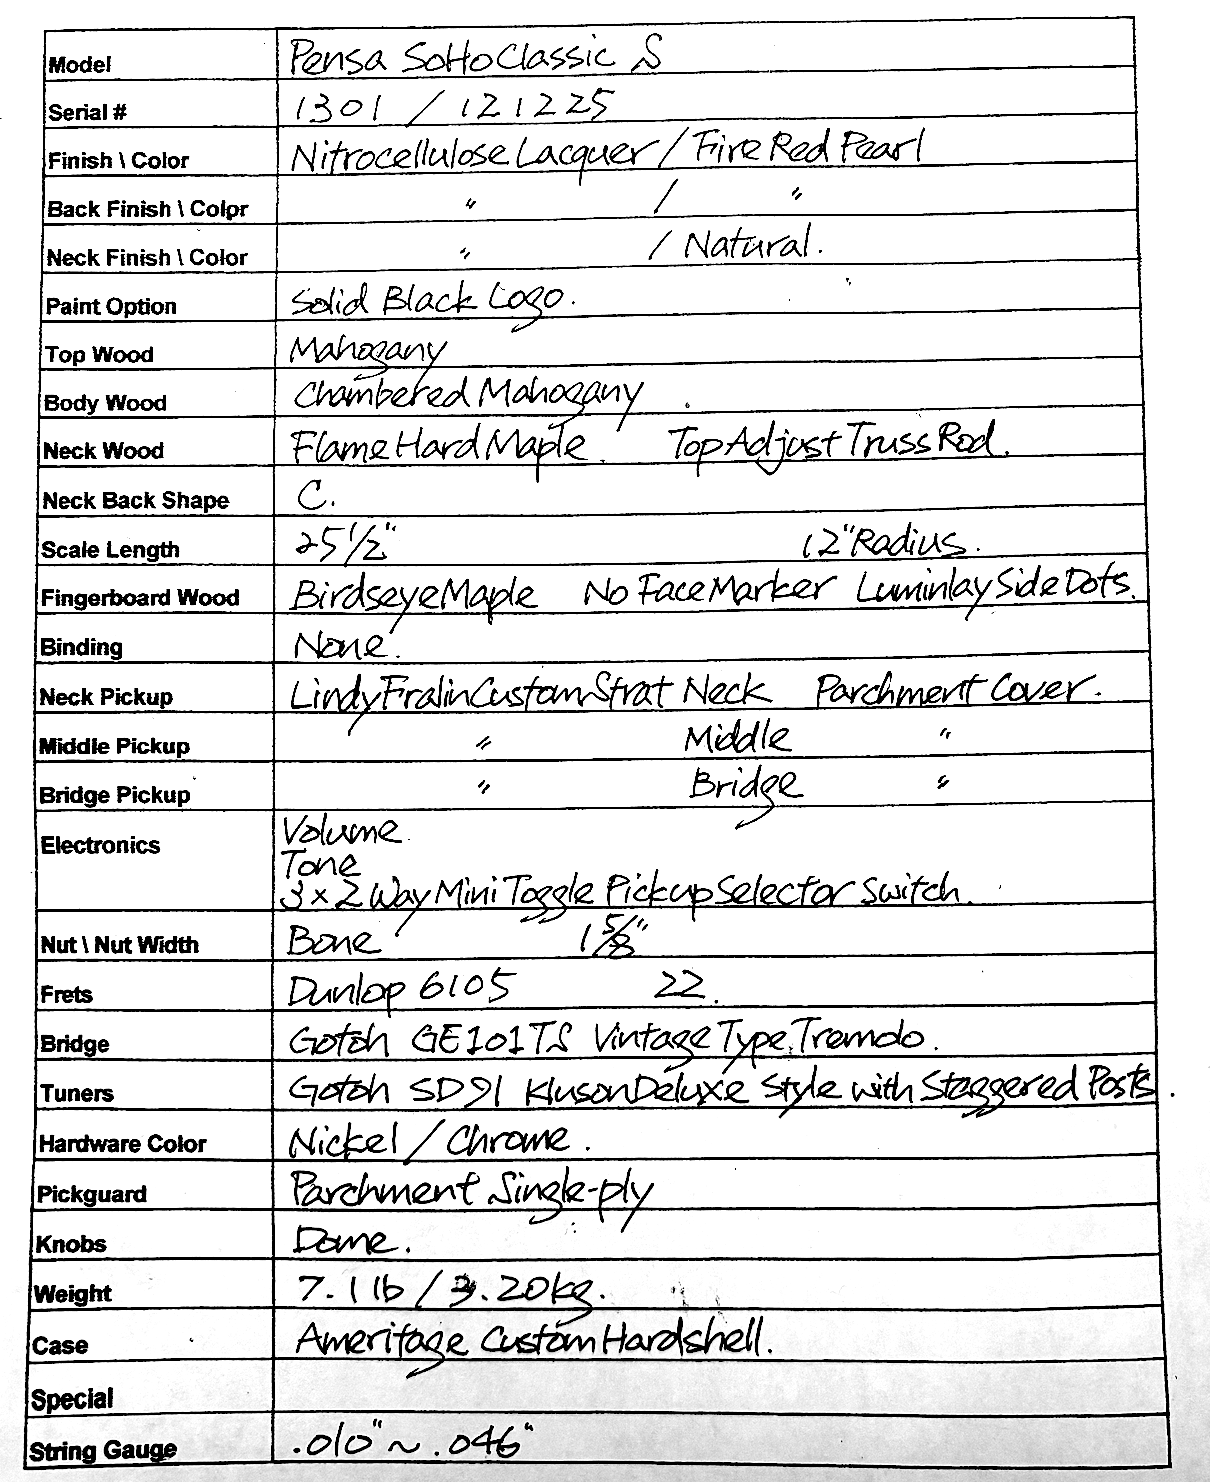 Model Pensa SoHo Classic S
Serial # 1301 / 121225
Finish \ Color Nitrocellulose Lacquer / Fire Red Pearl
Back Finish \ Color " / "
Neck Finish \ Color " / Natural.
Paint Option Solid Black Logo.
Top Wood Mahogany
Body Wood Chambered Mahogany
Neck Wood Flame Hard Maple. Top Adjust Truss Rod.
Neck Back Shape C.
Scale Length 25 1/2" 12" Radius.
Fingerboard Wood Birdseye Maple No Face Marker Luminlay Side Dots.
Binding None.
Neck Pickup Lindy Fralin Custom Strat Neck Parchment Cover.
Middle Pickup " Middle "
Bridge Pickup " Bridge "
Electronics Volume
Tone
3 x 2 Way Mini Toggle Pickup Selector Switch.
Nut \ Nut Width Bone 1 5/8"
Frets Dunlop 6105 22.
Bridge Gotoh GE101TS Vintage Type Tremolo.
Tuners Gotoh SD91 Kluson Deluxe Style with Staggered Posts.
Hardware Color Nickel / Chrome.
Pickguard Parchment Single-ply
Knobs Dome.
Weight 7.1 lb / 3.20kg.
Case Ameritage Custom Hardshell.
Special
String Gauge .010" ~ .046"